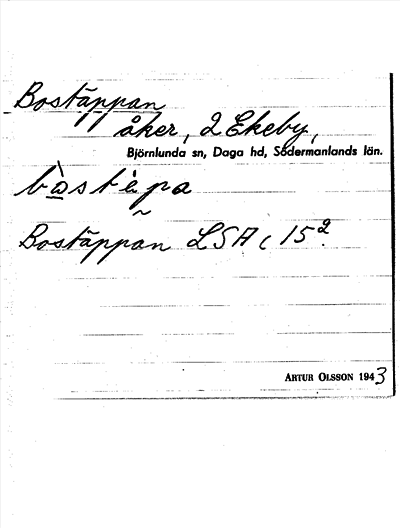 Bostäppan
åker, 2 Ekeby,
Björnlunda sn, Daga hd, Södermanlands län.
bòstèpa
Bostäppan LSA c 15².
ARTUR OLSSON 1943